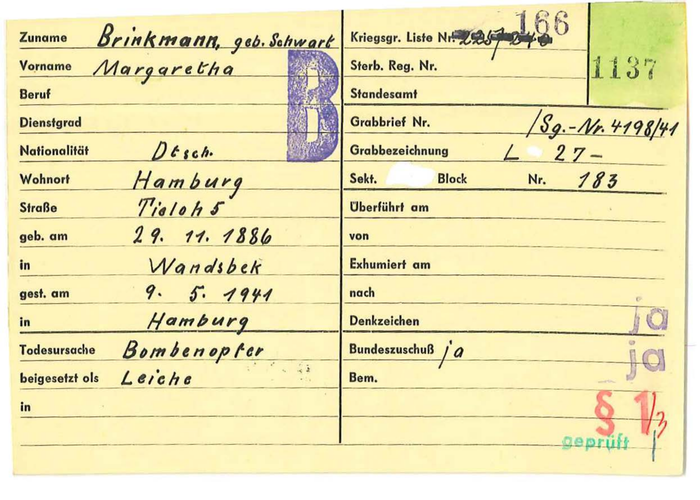 Zuname Brinkmann, geb. Schwart
Vorname Margaretha
Beruf
Dienstgrad
Nationalität Dtsch.
Wohnort Hamburg
Straße Tieloh 5
geb. am 29. 11. 1886
in Wandsbek
gest. am 9. 5. 1941
in Hamburg
Todesursache Bombenopfer
beigesetzt als Leiche
in
B
Kriegsgr. Liste Nr. 166
1137
Sterb. Reg. Nr.
Standesamt
Grabbrief Nr. /Sg.-Nr. 4198/41
Grabbezeichnung L 27-
Sekt. Block Nr. 183
Überführt am
von
Exhumiert am
nach
Denkzeichen ja
Bundeszuschuß ja ja
Bem.
§ 1/3
geprüft